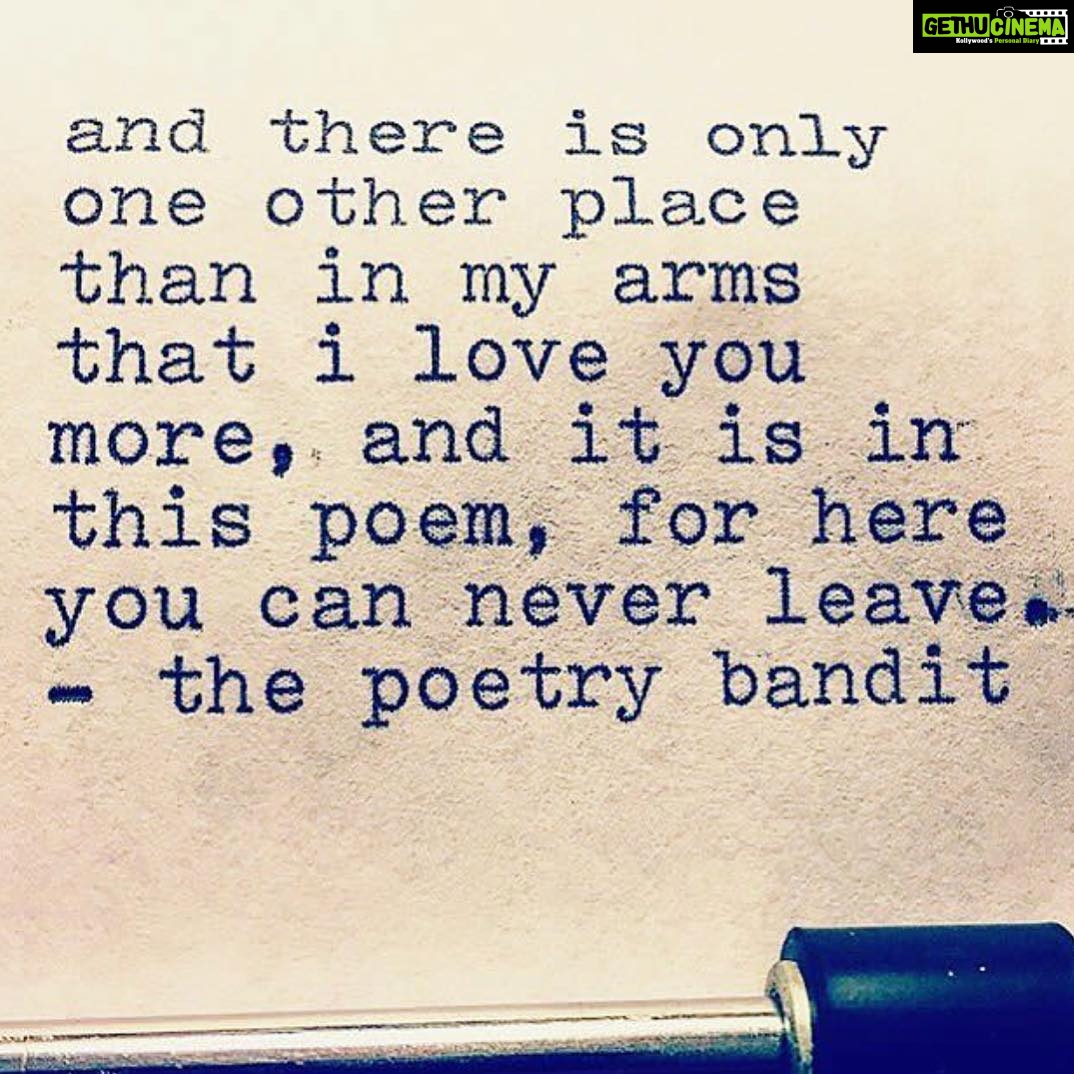 GETHUCINEMA
Kollywood's Personal Diary
and there is only
one other place
than in my arms
that i love you
more, and it is in
this poem, for here
you can never leave.
- the poetry bandit